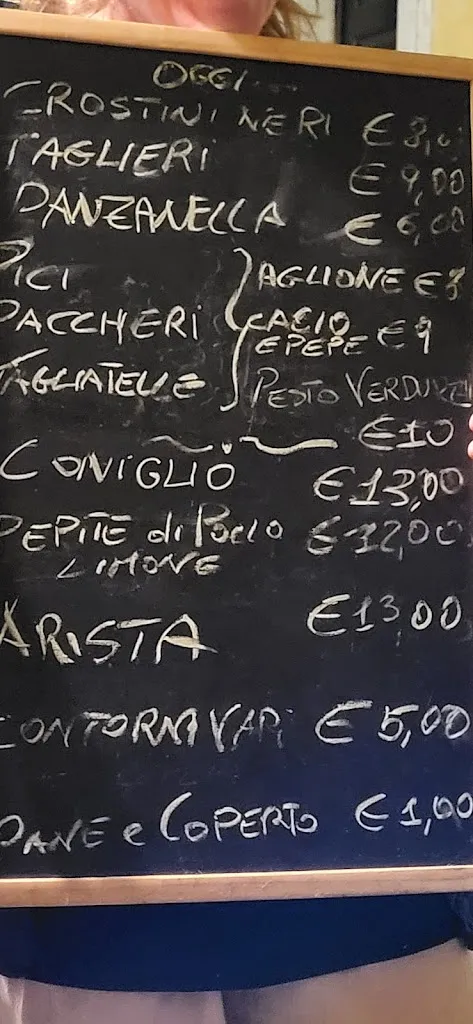 OGGI...
CROSTINI NERI € 8,0
TAGLIERI € 9,00
PANZANELLA € 6,00
PICI AGLIONE € 8
PACCHERI CACIO E PEPE € 9
TAGLIATELLE PESTO VERDURE
€10
CONIGLIO €13,00
PEPITE di POLLO €12,00
LIMONE
ARISTA €13,00
CONTORNI VARI € 5,00
PANE e COPERTO € 1,00